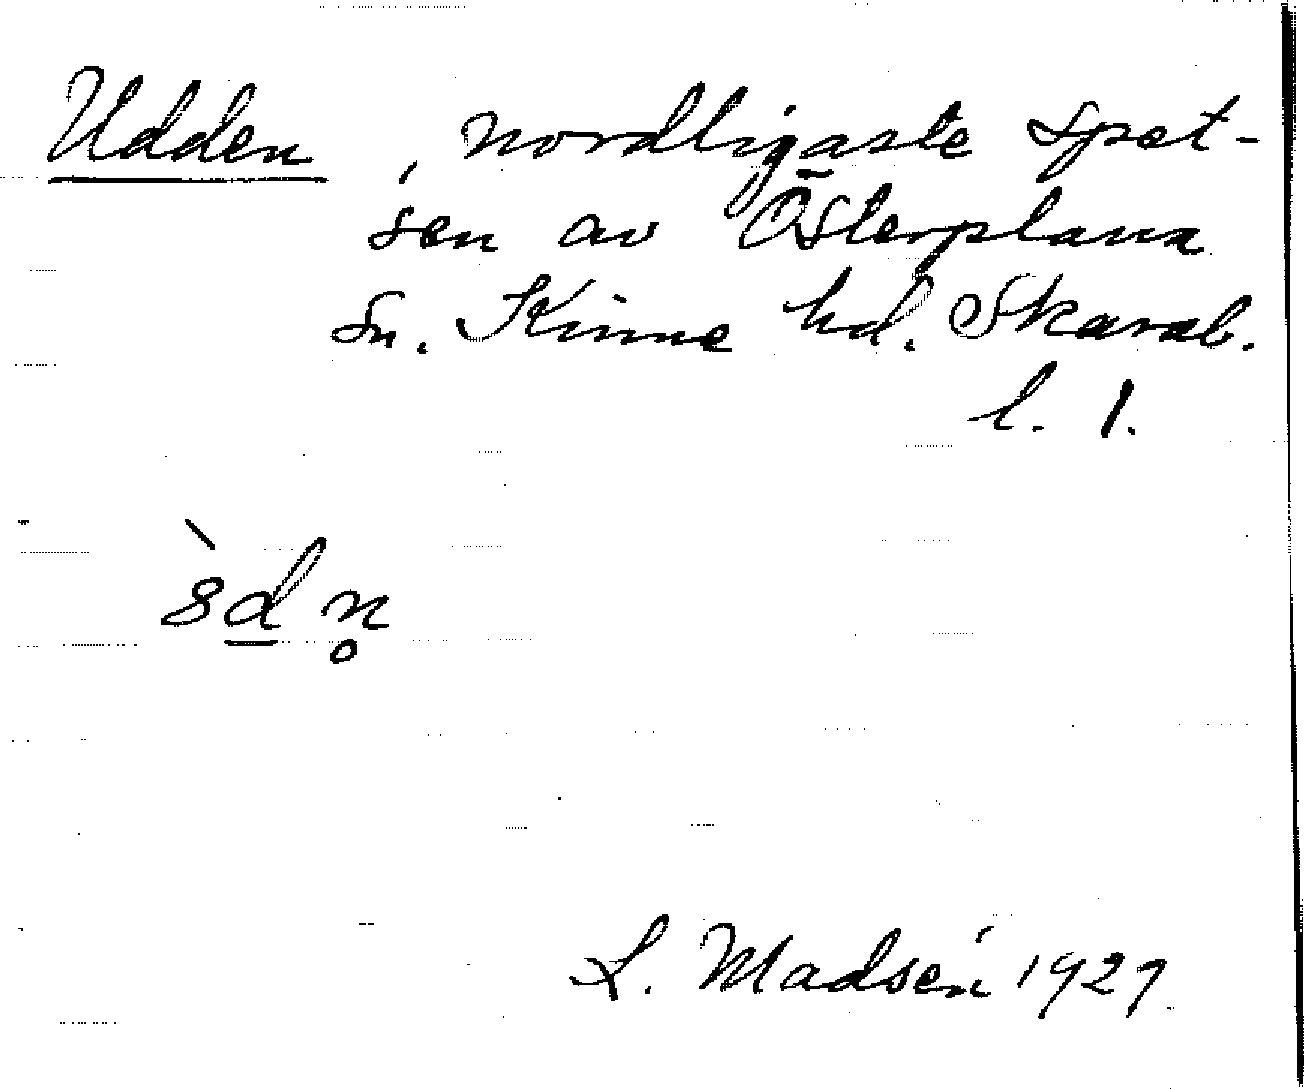 Udden, nordligaste spet-
sen av Österplana
sn. Kinne hd. Skarab.
l. 1.
L. Madsén 1927